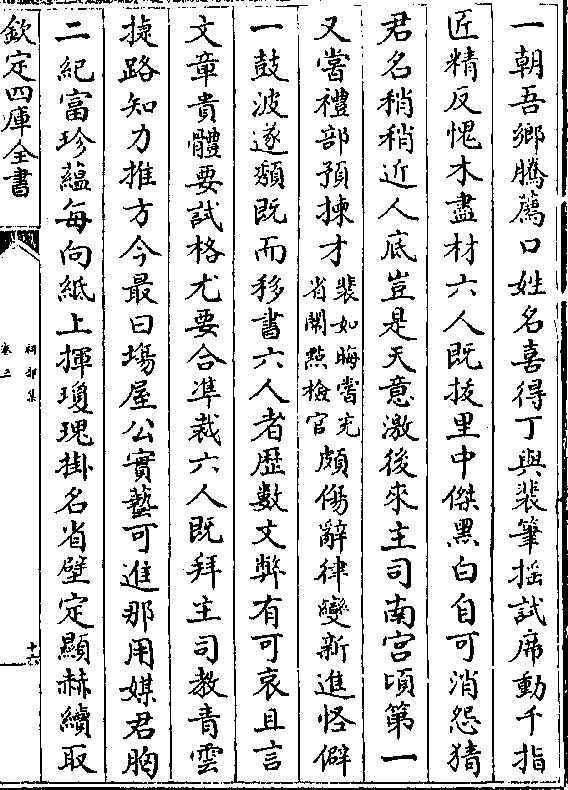 一朝吾鄉騰薦口姓名喜得丁與裴筆揺試席動千指
匠精反愧木盡材六人既拔里中傑黑白自可消怨猜
君名稍稍近人底豈是天意激後來主司南宮頃第一
又嘗禮部預揀才裴如晦嘗充省闈點檢官頗傷辭律變新進怪僻
一鼓波遂頽既而移書六人者歴數文弊有可哀且言
文章貴體要試格尤要合凖裁六人既拜主司教青雲
捷路知力推方今最曰塲屋公實藝可進那用媒君胸
二紀富珍藴每向紙上揮瓊瑰掛名省壁定顯赫續取
欽定四庫全書
祠部集
卷三
十六